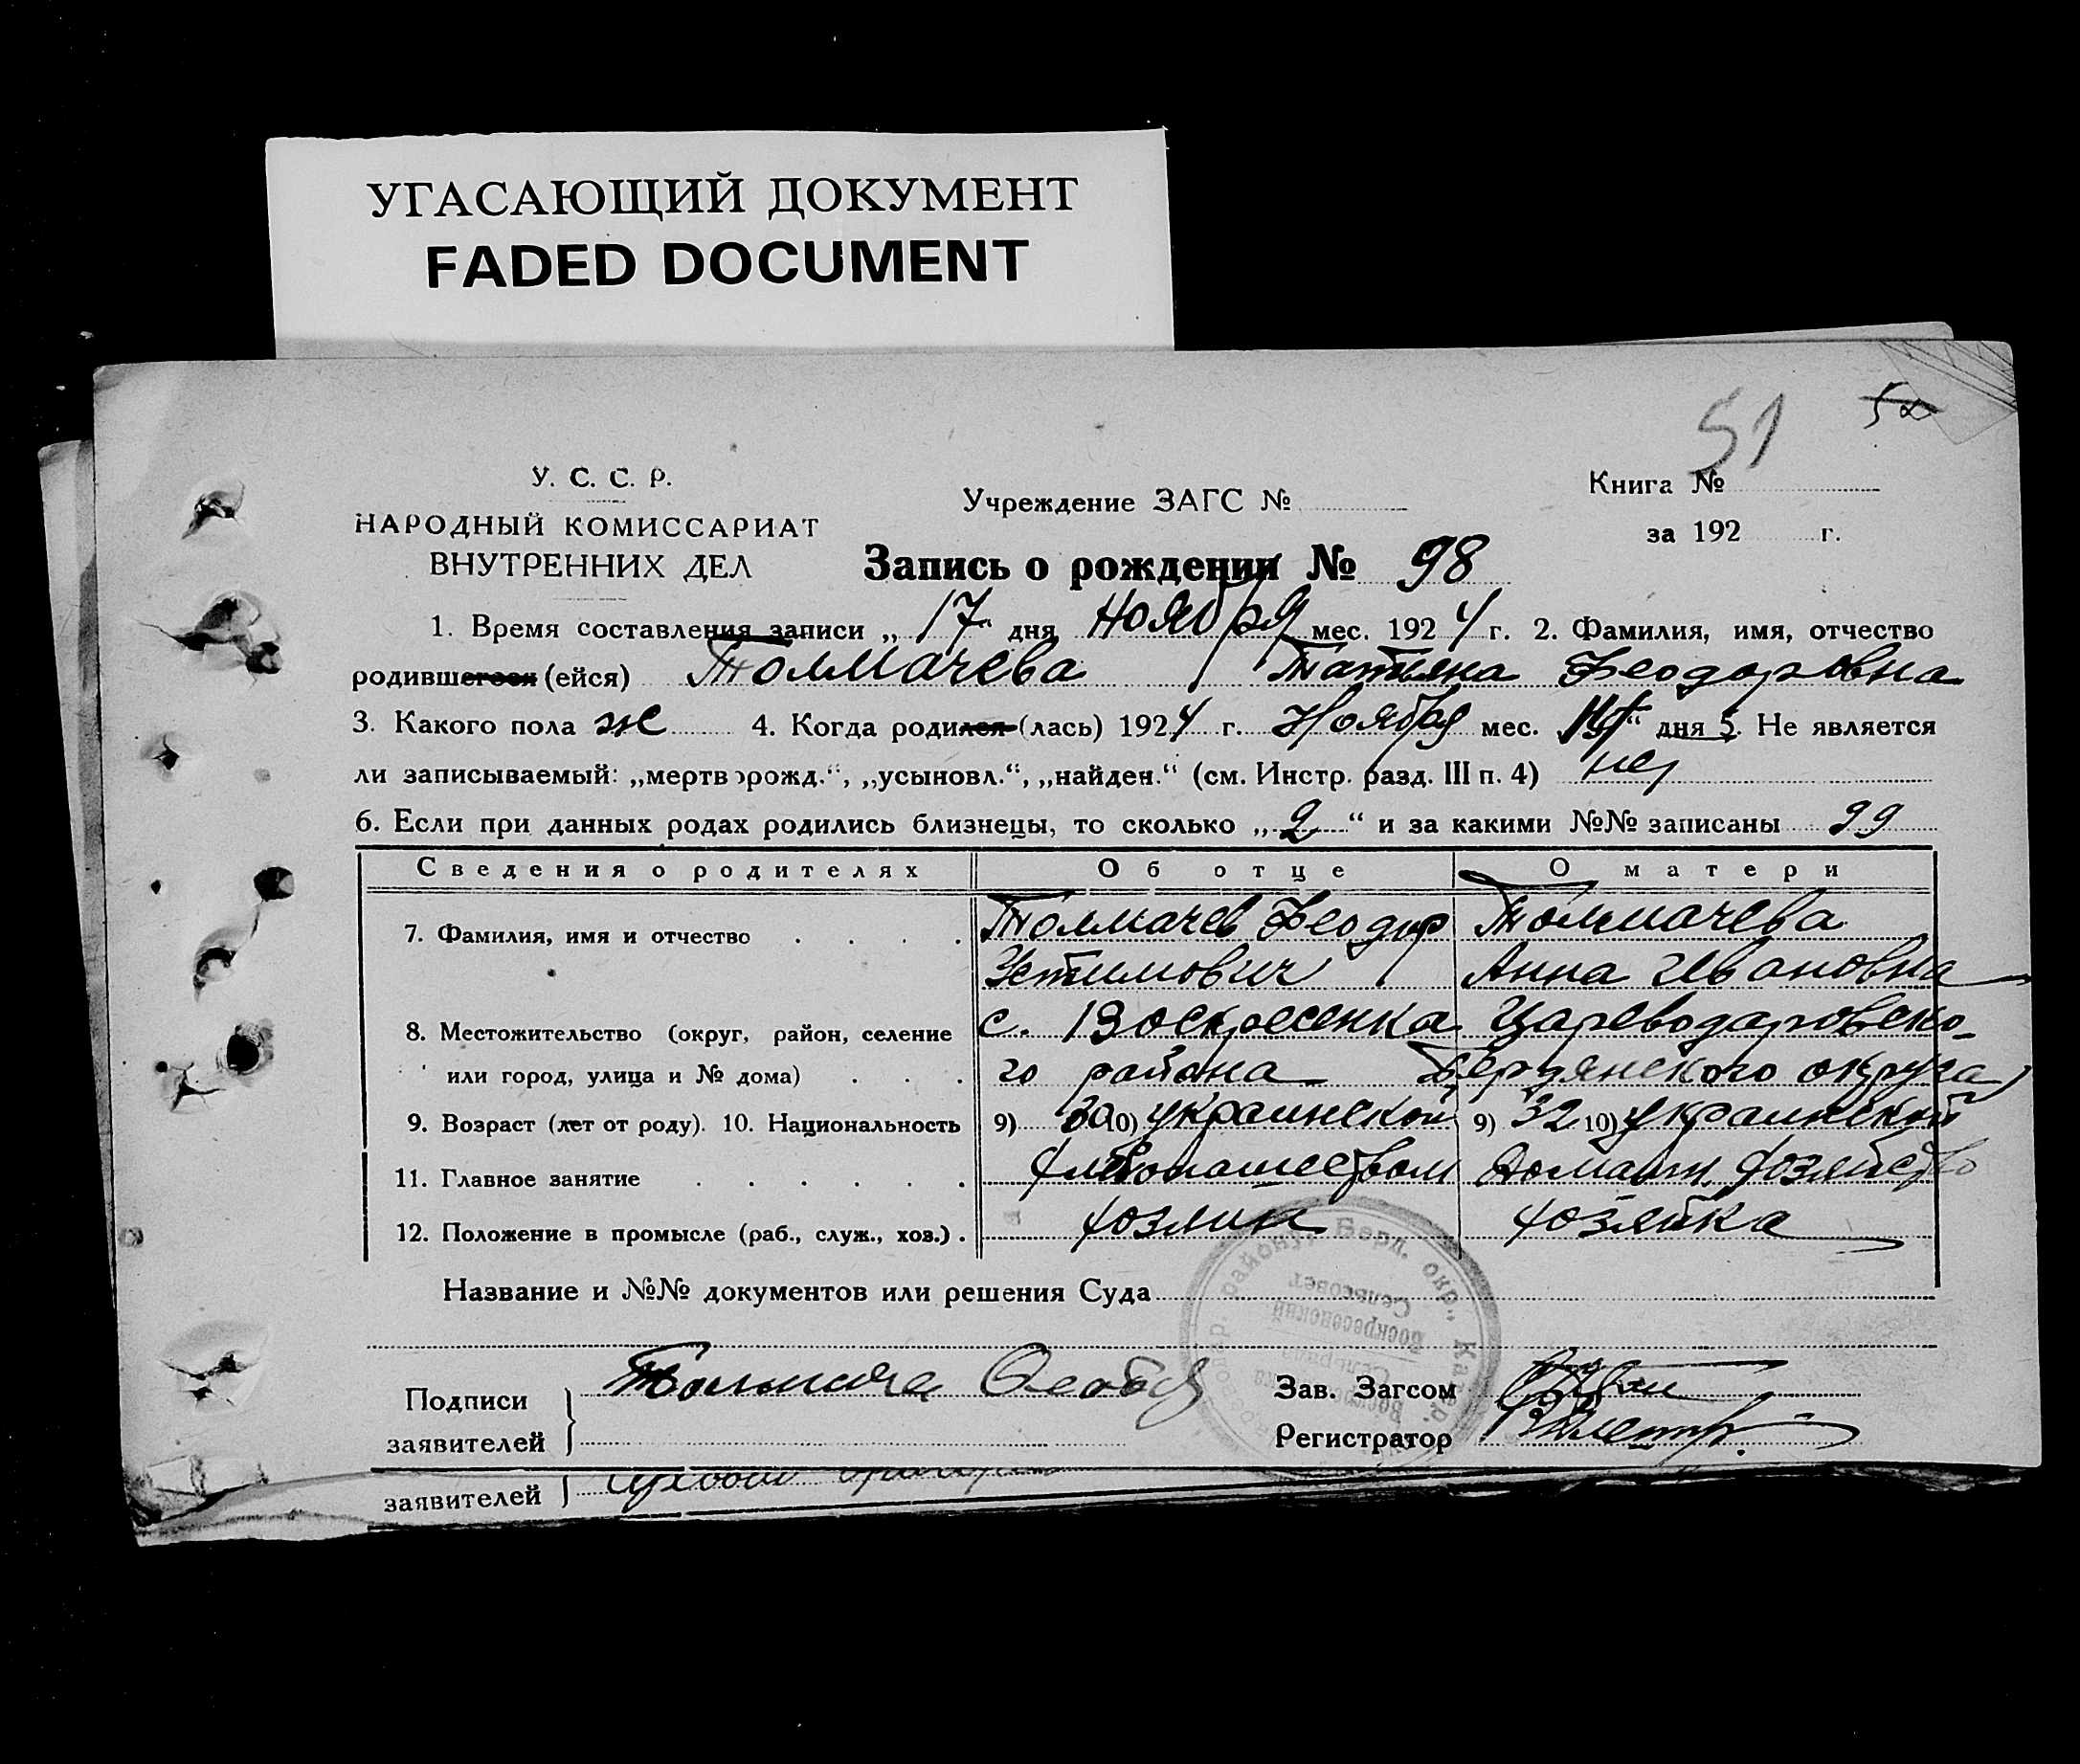 УГАСАЮЩИЙ ДОКУМЕНТ
FADED DOCUMENT
51
У. С. С. Р.
НАРОДНЫЙ КОМИССАРИАТ
ВНУТРЕННИХ ДЕЛ
Учреждение ЗАГС №
Книга №
за 192 г.
Запись о рождении № 98
1. Время составления записи „17“ дня Ноября мес. 1924 г. 2. Фамилия, имя, отчество
родившегося (ейся) Толмачева Татьяна Феодоровна
3. Какого пола ж 4. Когда родился (лась) 1924 г. Ноября мес. дня 5. Не является
ли записываемый: „мертворожд.“, „усыновл.“, „найден.“ (см. Инстр. разд. III п. 4) нет
6. Если при данных родах родились близнецы, то сколько „2“ и за какими №№ записаны 99
Сведения о родителях Об отце О матери
7. Фамилия, имя и отчество Толмачев Феодор Толмачева
Устимович Анна Ивановна
8. Местожительство (округ, район, селение с. Воскресенка Цареводаровско-
или город, улица и № дома) го района Бердянского округа
9. Возраст (лет от роду). 10. Национальность 9) 30 10) украинской 9) 32 10) украинской
11. Главное занятие хлебопашеством Домашн. хозяйство
12. Положение в промысле (раб., служ., хоз.) хозяин хозяйка
Название и №№ документов или решения Суда
району, Берд. окр., Катер.
Воскресенский
Сельсовет
Подписи
заявителей
Зав. Загсом
Регистратор
заявителей